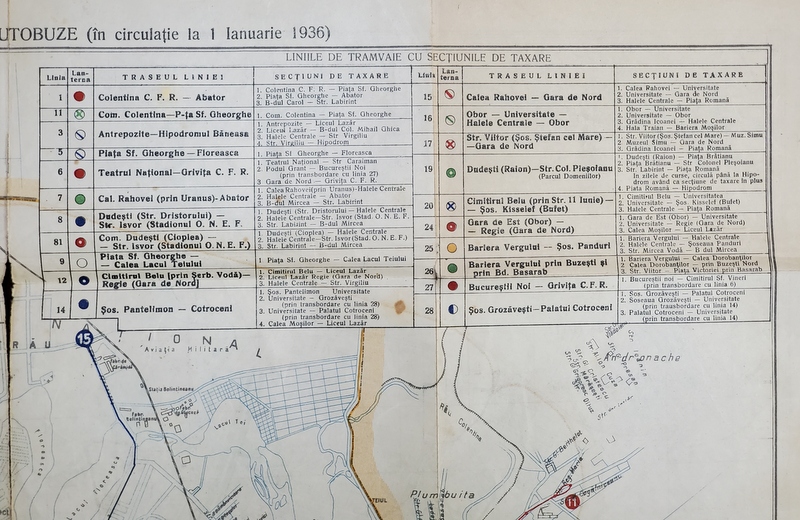 UTOBUZE (în circulație la 1 Ianuarie 1936)
LINIILE DE TRAMVAIE CU SECȚIUNILE DE TAXARE
Linia Lan-terna TRASEUL LINIEI SECȚIUNI DE TAXARE
1 Colentina C. F. R. — Abator
1. Colentina C. F. R. — Piața Sf. Gheorghe
2. Piața Sf. Gheorghe — Abator
3. B-dul Carol — Str. Labirint
11 Com. Colentina—P-ța Sf. Gheorghe
1. Com. Colentina — Piața Sf. Gheorghe
3 Antrepozite—Hipodromul Băneasa
1. Antrepozite — Liceul Lazăr
2. Liceul Lazăr — B-dul Col. Mihail Ghica
3. Halele Centrale — Str. Virgiliu
4. Str. Virgiliu — Hipodrom
5 Piața Sf. Gheorghe—Floreasca
1. Piața Sf Gheorghe — Floreasca
6 Teatrul Național—Grivița C. F. R.
1. Teatrul Național — Str Caraiman
2. Podul Grant — Bucureștii Noi
(prin transbordare cu linia 27)
3. Gara de Nord — Grivița C. F. R.
7 Cal. Rahovei (prin Uranus)-Abator
1. Calea Rahovei(prin Uranus)-Halele Centrale
2. Halele Centrale — Abator
3. B-dul Mircea — Str. Labirint
8 Dudești (Str. Dristorului) —
— Str. Isvor (Stadionul O. N. E. F.
1. Dudești (Str. Dristorului) — Halele Centrale
2. Halele Centrale—Str. Isvor (Stad. O. N. E. F.
3. Str. Labirint — B-dul Mircea
81 Com. Dudești (Cioplea)
— Str. Isvor (Stadionul O. N. E. F.)
1. Dudești (Cioplea) — Halele Centrale
2. Halele Centrale—Str. Isvor (Stad. O. N. E. F.)
3. Str. Labirint — B-dul Mircea
9 Piața Sf. Gheorghe —
— Calea Lacul Teiului
1. Piața Sf. Gheorghe — Calea Lacul Teiului
12 Cimitirul Belu (prin Șerb. Vodă)—
Regie (Gara de Nord)
1. Cimitirul Belu — Liceul Lazăr
2. Liceul Lazăr Regie (Gara de Nord)
3. Halele Centrale — Str. Virgiliu
14 Șos. Pantelimon — Cotroceni
1. Șos. Pantelimon — Universitate
2. Universitate — Grozăvești
(prin transbordare cu linia 28)
3. Universitate — Palatul Cotroceni
(prin transbordare cu linia 28)
4. Calea Moșilor — Liceul Lazăr
Linia Lan-terna TRASEUL LINIEI SECȚIUNI DE TAXARE
15 Calea Rahovei — Gara de Nord
1. Calea Rahovei — Universitate
2. Universitate — Gara de Nord
3. Halele Centrale — Piața Romană
16 Obor — Universitate —
Halele Centrale — Obor
1. Obor — Universitate
2. Universitate — Obor
3. Grădina Icoanei — Halele Centrale
4. Hala Traian — Bariera Moșilor
17 Str. Viitor (Șos. Ștefan cel Mare) —
—Gara de Nord
1. Str. Viitor (Șos. Ștefan cel Mare)— Muz. Simu
2. Muzeul Simu — Gara de Nord
3. Grădina Icoanei — Piața Romană
19 Dudești (Raion)—Str. Col. Pleșoianu
(Parcul Domeniilor)
1. Dudești (Raion) — Piața Brătianu
2. Piața Brătianu — Str Colonel Pleșoianu
3. Str. Labirint — Piața Romană
În zilele de curse, circulă până la Hipo-
drom având ca secțiune de taxare în plus
4. Piața Romană — Hipodrom
20 Cimitirul Belu (prin Str. 11 Iunie) —
— Șos. Kisselef (Bufet)
1. Cimitirul Belu — Universitatea
2. Universitate — Șos. Kisselef (Bufet)
3. Halele Centrale — Piața Romană
24 Gara de Est (Obor) —
— Regie (Gara de Nord)
1. Gara de Est (Obor) — Universitate
2. Universitate — Regie (Gara de Nord)
3. Calea Moșilor — Liceul Lazăr
25 Bariera Vergului — Șos. Panduri
1. Bariera Vergului — Halele Centrale
2. Halele Centrale — Șoseaua Panduri
3. Str. Mircea Vodă — B dul Mircea
26 Bariera Vergului prin Buzești și
prin Bd. Basarab
1. Bariera Vergului — Calea Dorobanților
2. Calea Dorobanților — prin Buzești Nord
3. Str. Viitor — Piața Victoriei prin Basarab
27 Bucureștii Noi — Grivița C.F.R.
1. Bucureștii noi — Cimitirul Sf. Vineri
(prin transbordare cu linia 6)
28 Șos. Grozăvești—Palatul Cotroceni
1. Șos. Grozăvești — Palatul Cotroceni
2. Șoseaua Grozăvești — Universitate
(prin transbordare cu linia 14)
3. Palatul Cotroceni — Universitate
(prin transbordare cu linia 14)
N A Ț I O N A L
RĂU
15
Aviația Militară
Stația Balintineanu
Lacul Tei
Lacul Floreasca
TEIUL
Râu Colentina
Plumbuita
Andronache
Str. Gl. Berthelot
Str. Maria
11